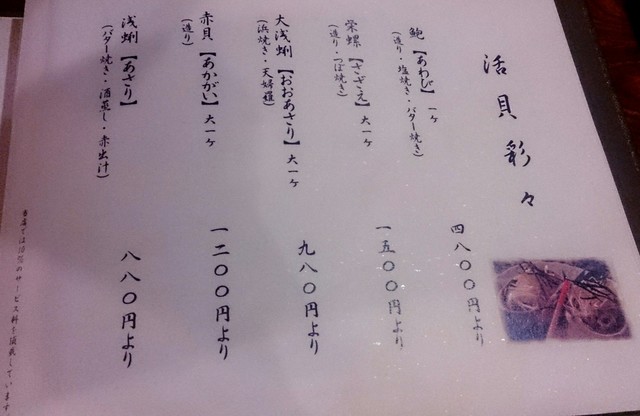 活貝彩々
鮑【あわび】 一ヶ
(造り・塩焼き・バター焼き)
四八〇〇円より
栄螺【さざえ】 大一ヶ
(造り・つぼ焼き)
一五〇〇円より
大浅蜊【おおあさり】 大一ヶ
(浜焼き・天婦羅)
九八〇円より
赤貝【あかがい】 大一ヶ
(造り)
一二〇〇円より
浅蜊【あさり】
(バター焼き・酒蒸し・赤出汁)
八八〇円より
のサービス料を頂戴しています